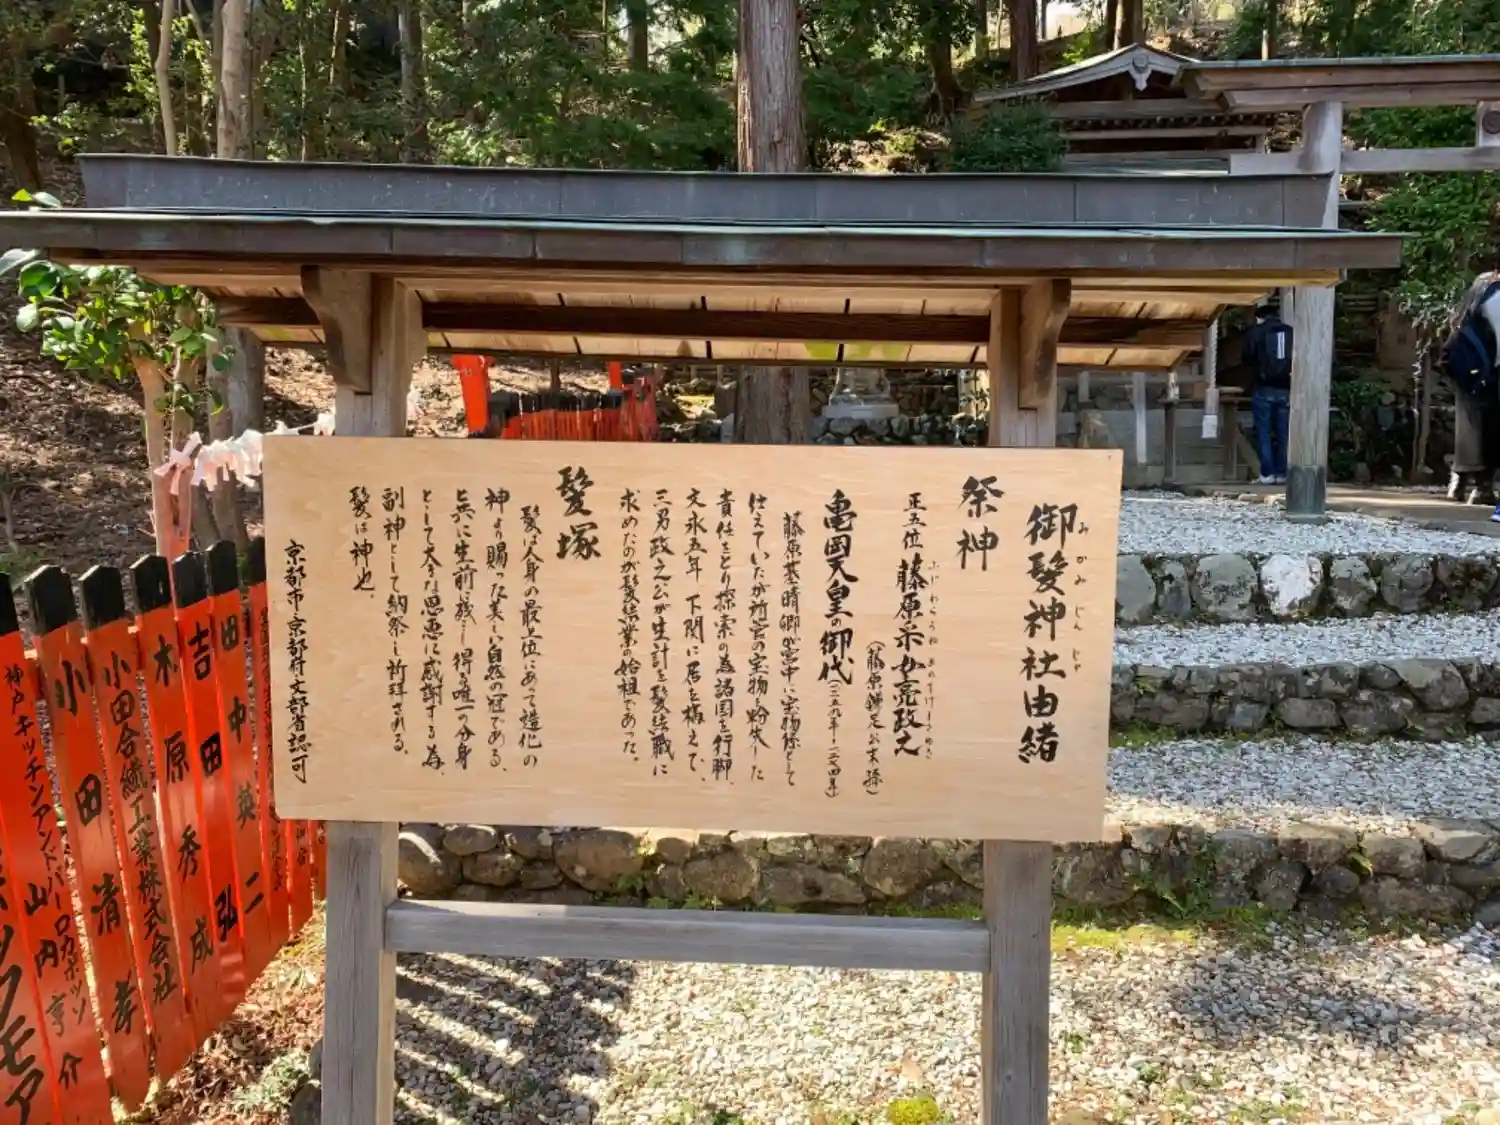 御髪神社由緒
みかみじんじゃ
祭神
正五位 藤原采女亮政之
ふじわらうねめのすけまさゆき
(藤原鎌足公末孫)
亀岡天皇の御代
藤原基晴卿が宮中に宝物係として
仕えていたが所管の宝物を紛失した
責任をとり探索の為諸国を行脚、
文永五年 下関に居を構えて、
三男政之公が生計を髪結職に
求めたのが髪結業の始祖であった。
髪塚
髪は人身の最上位にあって造化の
神より賜った美しい自然の冠である、
共に生前に残し得る唯一の分身
として大きな恩恵に感謝する為、
副神として納祭し祈拝される。
髪は神也。
京都市・京都府・文部省認可
田中英二
吉田 弘
木原秀成
小田合繊工業株式会社
小田清孝
山内亨介
神戸キッチンアンドバーロカボッソ